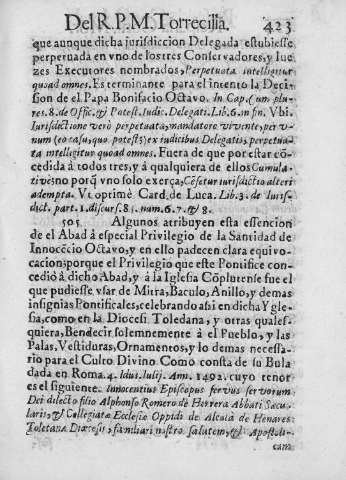 Del R. P. M. Torrecilla. 423
que aunque dicha jurisdiccion Delegada estubiesse
perpetuada en vno de los tres Conservadores, y Iue
zes Executores nombrados, Perpetuata intelligitur
quad omnes. Es terminante para el intento la Deci-
sion de el Papa Bonifacio Octavo. In Cap. Cum plu-
res. 8. de Offic. & Potest. Iudic. Delegati. Lib. 6. in fin. Vbi.
Iurisdictione verò perpetuata, mandatore vivente, per v-
num (eo casu, quo potest) ex iudicibus Delegatis, perpetua-
ta intelligitur quoad omnes. Fuera de que por estar cõ-
cedida à todos tres, y à qualquiera de ellos Cumula-
tivè; no porq̃ vno solo exerça, Cẽsetur iurisdictio alteri
adempta. Vt optimè Card. de Luca. Lib. 3. de Iuris-
dict. part. 1. discurs. 8. num. 6. 7. & 8.
505 Algunos atribuyen esta essencion
de el Abad à especial Privilegio de la Santidad de
Innocẽcio Octavo, y en ello padecen clara equivo-
cacion; porque el Privilegio que este Pontifice con-
cediò à dicho Abad, y à la Iglesia Cõplutense fue el
que pudiesse vsar de Mitra, Baculo, Anillo, y demas
insignias Pontificales, celebrando assi en dicha Ygle-
sia, como en la Diocesi Toledana, y otras quales-
quiera, Bendecir solemnemente à el Pueblo, y las
Palas, Vestiduras, Ornamentos, y lo demas necessa-
rio para el Culto Divino Como consta de su Bula
dada en Roma. 4. Idus. Iulij. Ann. 1492. cuyo tenor
es el siguiente. Innocentius Episcopus servus servorum
Dei dilecto filio Alphonso Romero de Herrera Abbati Sæcu
laris, & Collegiatæ Ecclesiæ Oppidi de Alcalà de Henares
Toletanæ Diœcesis, familiari nostro salutem, & Apostoli-
cam